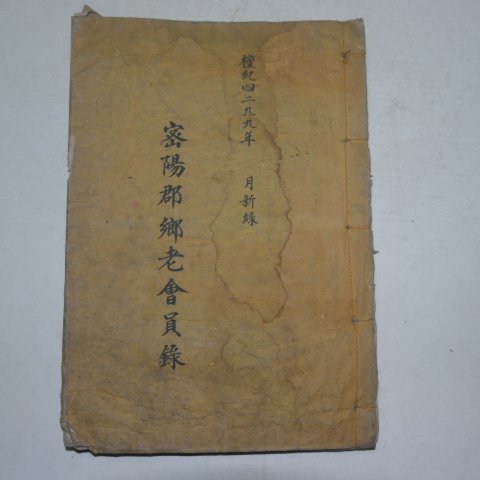 檀紀四二九九年 月新綠
密陽郡鄕老會員錄